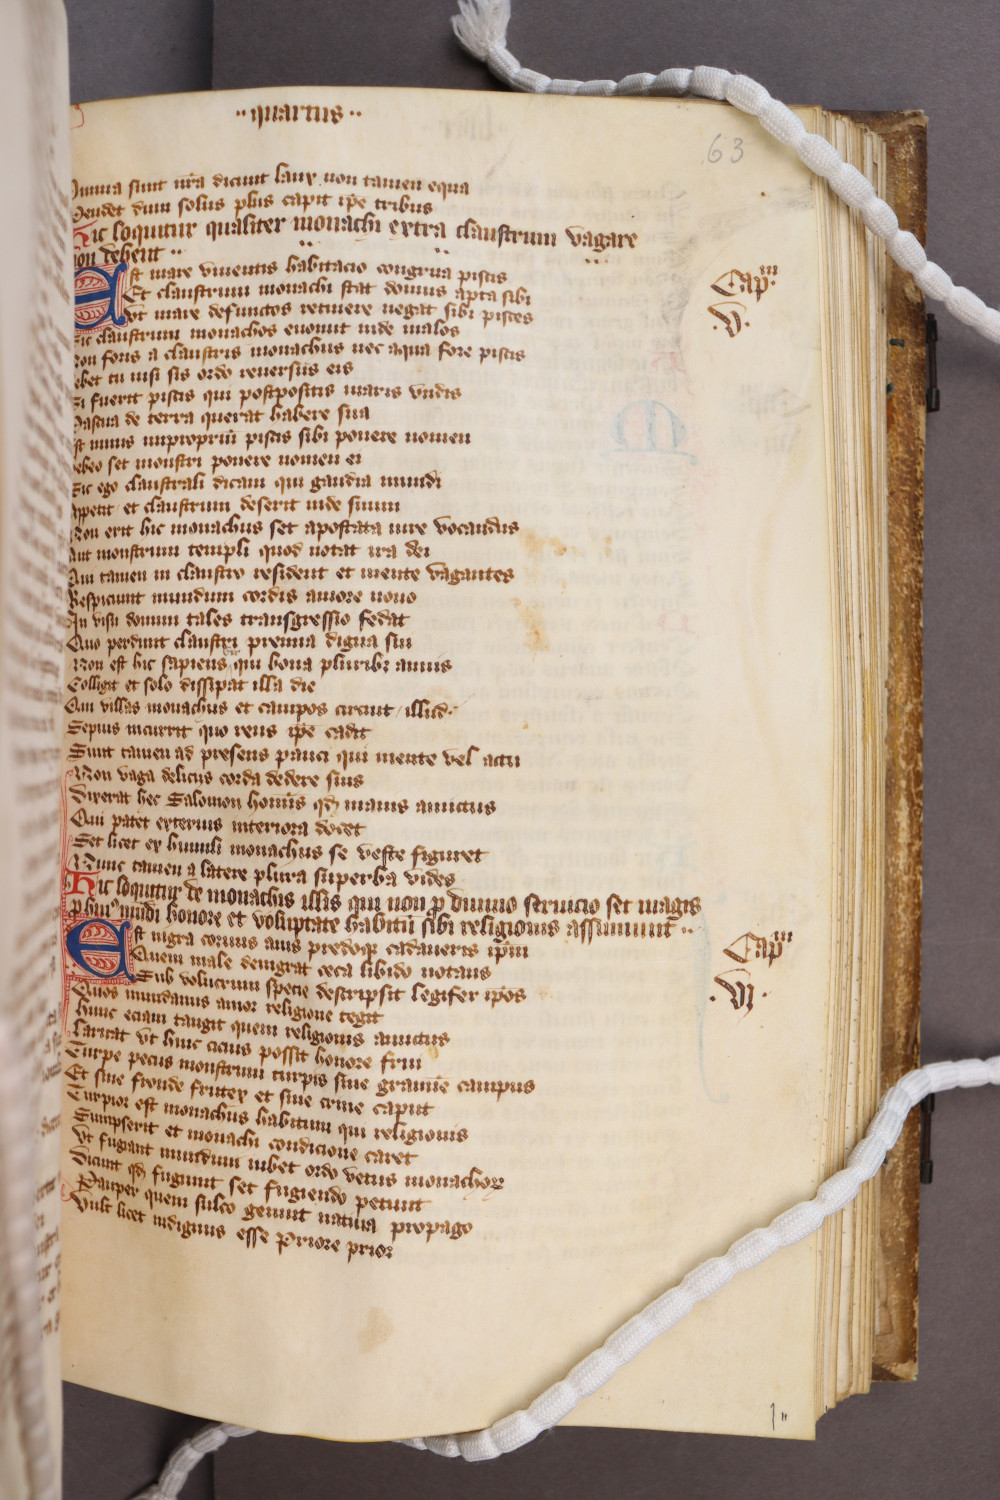 ·· quartus ··
63
Omnia sunt nr̄a dicunt laux non tamen equa
Pendet dum solus plus capit ip̄e tribus
Hic loquitur qualiter monachi extra claustrum vagare
non debent ··
Est mare viuentis habitacio congrua piscis
Et claustrum monachi stat domus apta sibi
Vt mare defunctos retinere negat sibi pisces
Sic claustrum monachos euomit inde malos
Non foris a claustris monachus nec aqua fore piscis
debet tu nisi sis ordo reuersus eis
Si fuerit piscis qui postpositis maris vndis
Pascua de terra querat habere sua
Est nimis impropriū piscis sibi ponere nomen
debeo set monstri ponere nomen ei
Sic ego claustrali dicam qui gaudia mundi
Appetit et claustrum deserit inde suum
Non erit hic monachus set apostata iure vocandus
Aut monstrum templi quod notat ira dei
Qui tamen in claustro resident et mente vagantes
Respiciunt mundum cordis amore nouo
In visu domini tales transgressio fedat
Quo perdunt claustri premia digna sui
Non est hic sapiens qui bona pluribꝫ annis
Colligit et solo dissipat illa die
Qui villas monachus et campos circuit / illud
Sepius incurrit quo reus ip̄e cadit
Sunt tamen ad presens pauci qui mente vel actu
Non vaga deliciis corda dedere suis
Dixerat hec Salomon homīs qđ manis amictus
Qui patet exterius interiora docet
Set licet ex humili monachus se veste figuret
Nunc tamen a latere plura superba vides
Hic loquitur de monachis illis qui non ꝑ diuino seruicio set magis
ꝑ huiꝰ mūdi honore et voluptate habitū sibi religionis assumunt ··
Est nigra coruus auis predoqꝫ cadaueris ip̄m
Quem male denigrat ceca libido notans
Sub volucrum specie descripsit legifer ip̄os
Quos mundanus amor religione tegit
Hunc eciam tangit quem religionis amictus
Laruat vt hinc cicius possit honore frui
Turpe pecus monstrum turpis sine gramīe campus
Et sine fronde frutex et sine crine caput
Turpior est monachus habitum qui religionis
Sumpserit et monachi condicione caret
Vt fugiant mundum iubet ordo vetus monachoꝝ
Dicunt qđ fugiunt set fugiendo petunt
Pauper quem sulco genuit natiua propago
Vult licet indignus esse Priore prior
Capᵐ
·V·
Capᵐ
·VI·